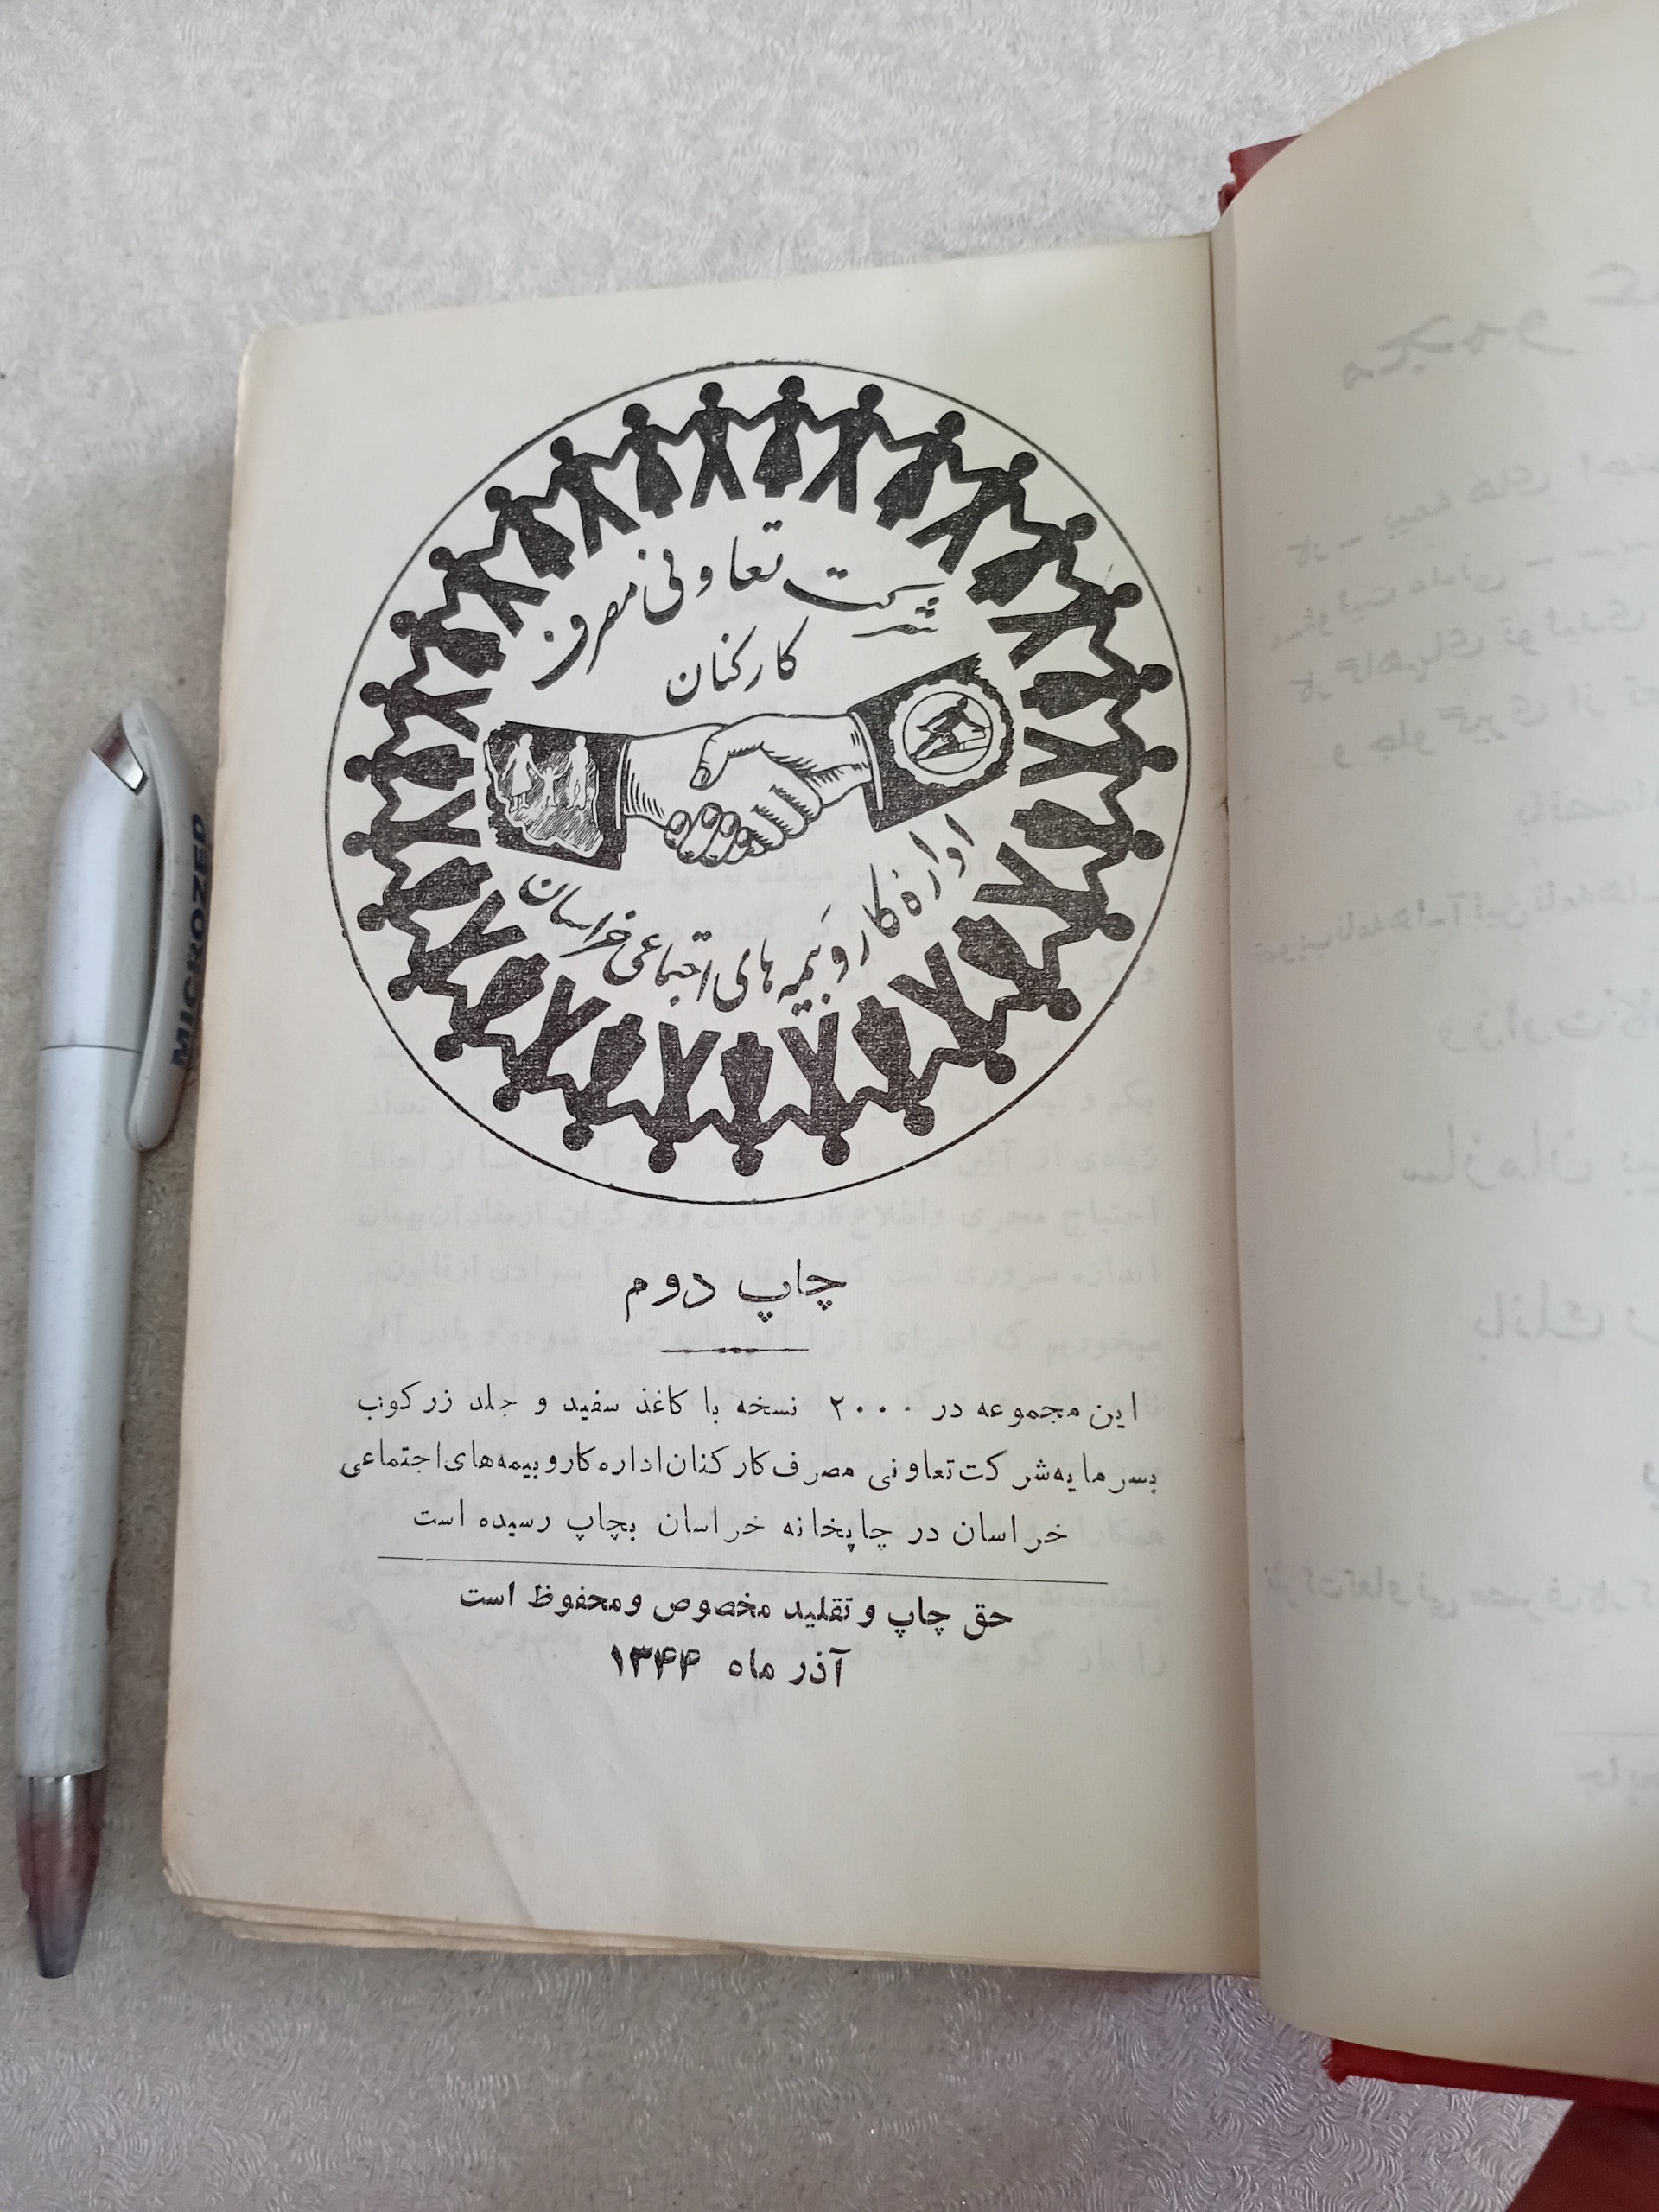 شرکت تعاونی مصرف
کارکنان
اداره کار و بیمه های اجتماعی خراسان
چاپ دوم
این مجموعه در ۲۰۰۰ نسخه با کاغذ سفید و جلد زرکوب
بسرمایه شرکت تعاونی مصرف کارکنان اداره کار و بیمه‌های اجتماعی
خراسان در چاپخانه خراسان بچاپ رسیده است
حق چاپ و تقلید مخصوص و محفوظ است
آذر ماه ۱۳۴۴
MICROZED